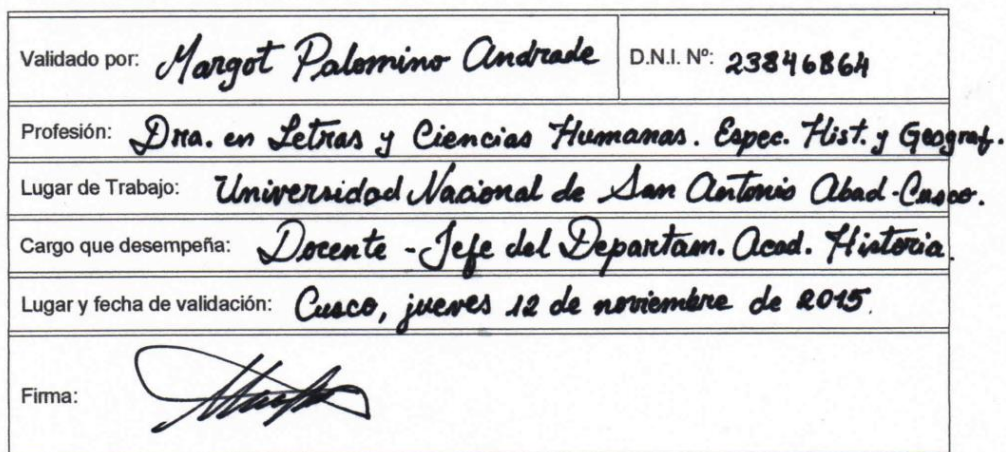 Validado por: Margot Palomino Andrade D.N.I. Nº: 23846864
Profesión: Dra. en Letras y Ciencias Humanas. Espec. Hist. y Geograf.
Lugar de Trabajo: Universidad Nacional de San Antonio Abad-Cusco.
Cargo que desempeña: Docente - Jefe del Departam. Acad. Historia
Lugar y fecha de validación: Cusco, jueves 12 de noviembre de 2015.
Firma: